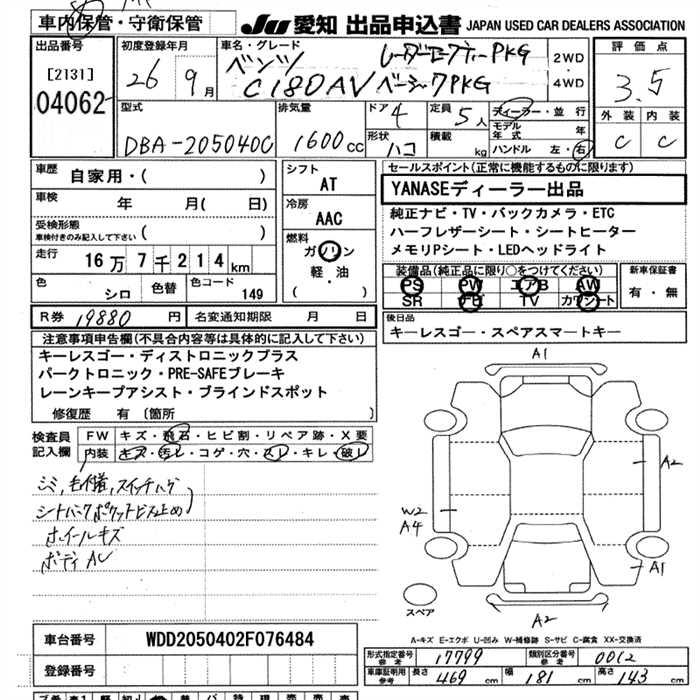 車内保管・守衛保管
JU 愛知 出品申込書 JAPAN USED CAR DEALERS ASSOCIATION
出品番号
[2131]
04062
初度登録年月
26 9月
車名・グレード
ベンツ レーダーセーフティーPKG
C180AV ベーシックPKG
2WD
4WD
評価点
3.5
外装 内装
C C
型式
DBA-205040C
排気量
1600cc
ドア 4
形状 ハコ
定員 5人
積載 kg
ディーラー・並行
モデル年式 年
ハンドル 左・右
車歴 自家用・( )
車検 年 月( 日)
受検形態
車検付きのみ記入して下さい ( )
走行 16万7千214km
色 シロ 色替 色コード 149
シフト
AT
冷房
AAC
燃料
ガソリン
軽・油
( )
セールスポイント(正常に機能するものに限ります)
YANASEディーラー出品
純正ナビ・TV・バックカメラ・ETC
ハーフレザーシート・シートヒーター
メモリPシート・LEDヘッドライト
装備品(純正品に限り○をつけてください)
PS PW エアB AW
SR ナビ TV カワシート
新車保証書
有・無
R券 19880円 名変通知期限 月 日
後日品
キーレスゴー・スペアスマートキー
注意事項申告欄(不具合内容等は具体的に記入して下さい)
キーレスゴー・ディストロニックプラス
パークトロニック・PRE-SAFEブレーキ
レーンキープアシスト・ブラインドスポット
修復歴 有 〔箇所 〕
検査員記入欄
FW キズ・飛石・ヒビ割・リペア跡・X要
内装 キズ・汚レ・コゲ・穴・スレ・キレ・破レ
シートバックポケットビス止め
ホイールキズ
ボディAU
A1
A2
W2
A4
A1
A2
スペア
A-キズ E-エクボ U-凹み W-補修跡 S-サビ C-腐食 XX-交換済
車台番号 WDD2050402F076484
登録番号
形式指定番号 参考 17799 類別区分番号 参考 0012
車庫証明用 参考 長さ 469cm 幅 181cm 高さ 143cm